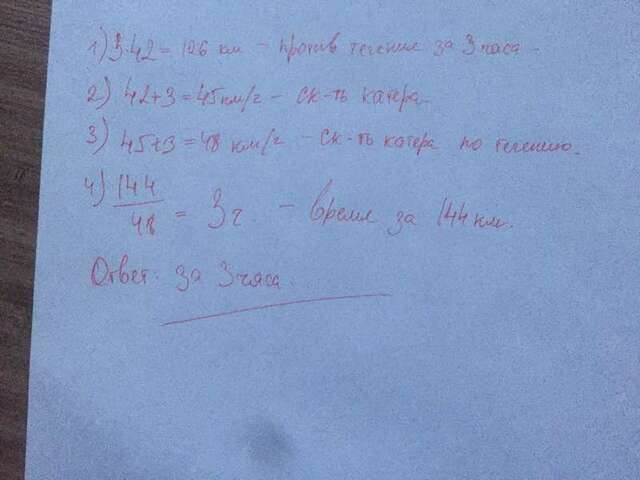 1) 3·42 = 126 км – против течение за 3 часа –
2) 42+3 = 45 км/ч – ск-ть катера.
3) 45+3 = 48 км/ч – ск-ть катера по течению.
4) 144
48 = 3ч. – време за 144 км.
Ответ. за 3 часа.